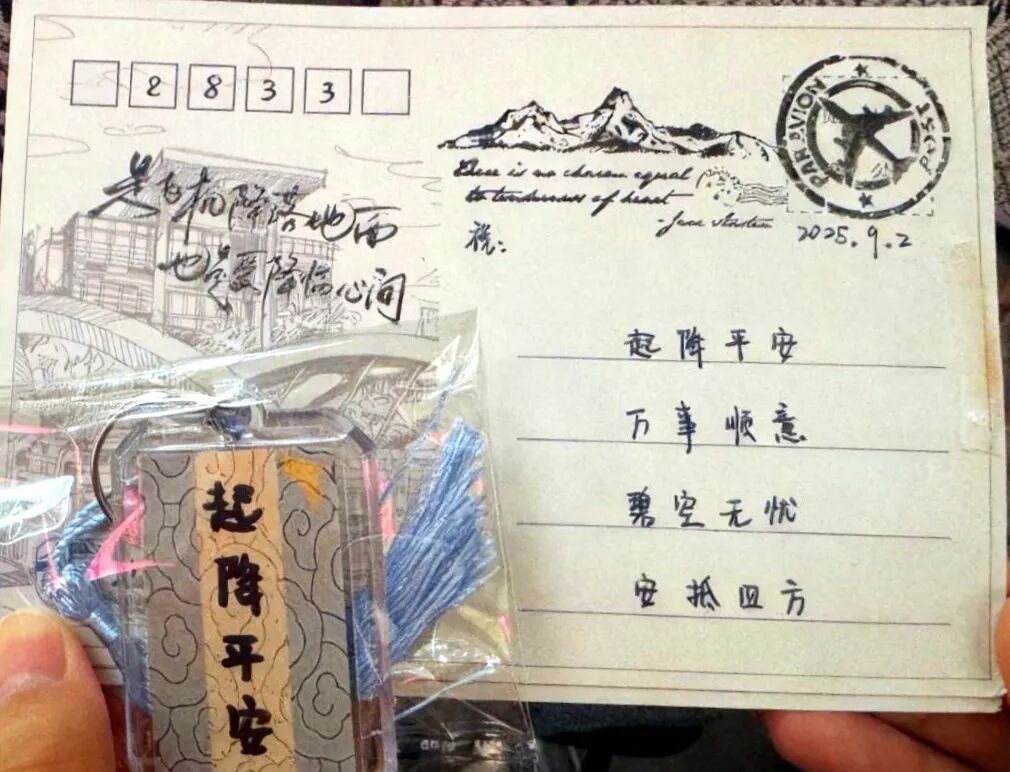 2 8 3 3
是飞机降落地面
也是爱降临心间
There is no charm equal
to tenderness of heart
-Jane Austen
PAR AVION
POST
2025.9.2
祝:
起降平安
万事顺意
碧空无忧
安抵四方
起降平安